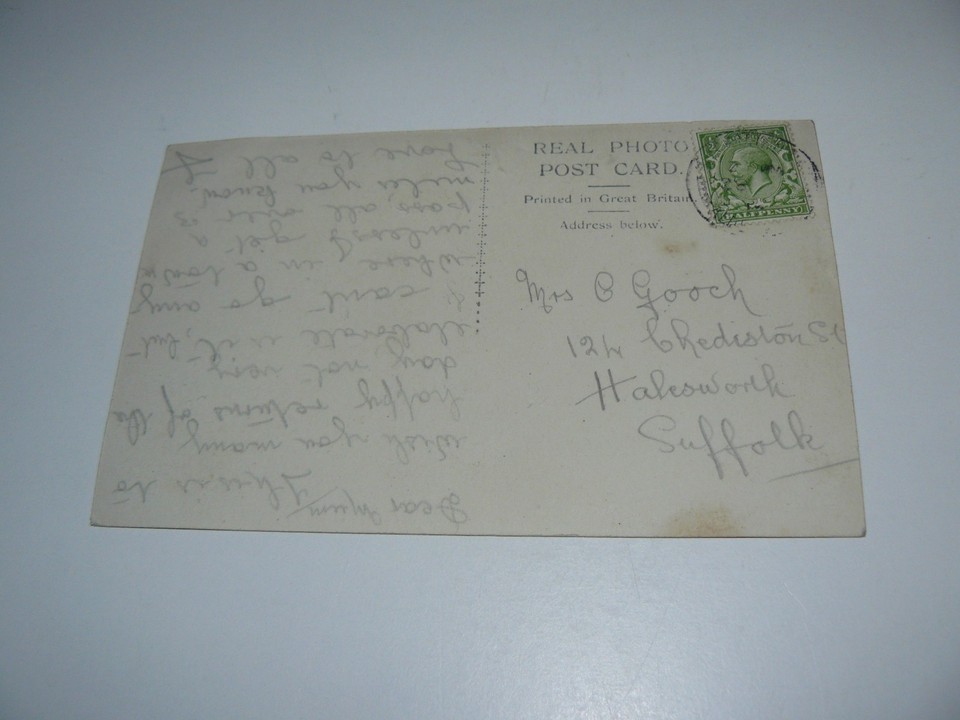 REAL PHOTO
POST CARD.
Printed in Great Britain
Address below.
HALFPENNY
Mrs C Gooch
124 Chediston St
Halesworth
Suffolk
Dear Mum This is to
wish you many
happy returns of the
day not very
elaborate is it, but
I can't go any
where in a town
unless I get a
pass all over is
miles you know.
Love to all